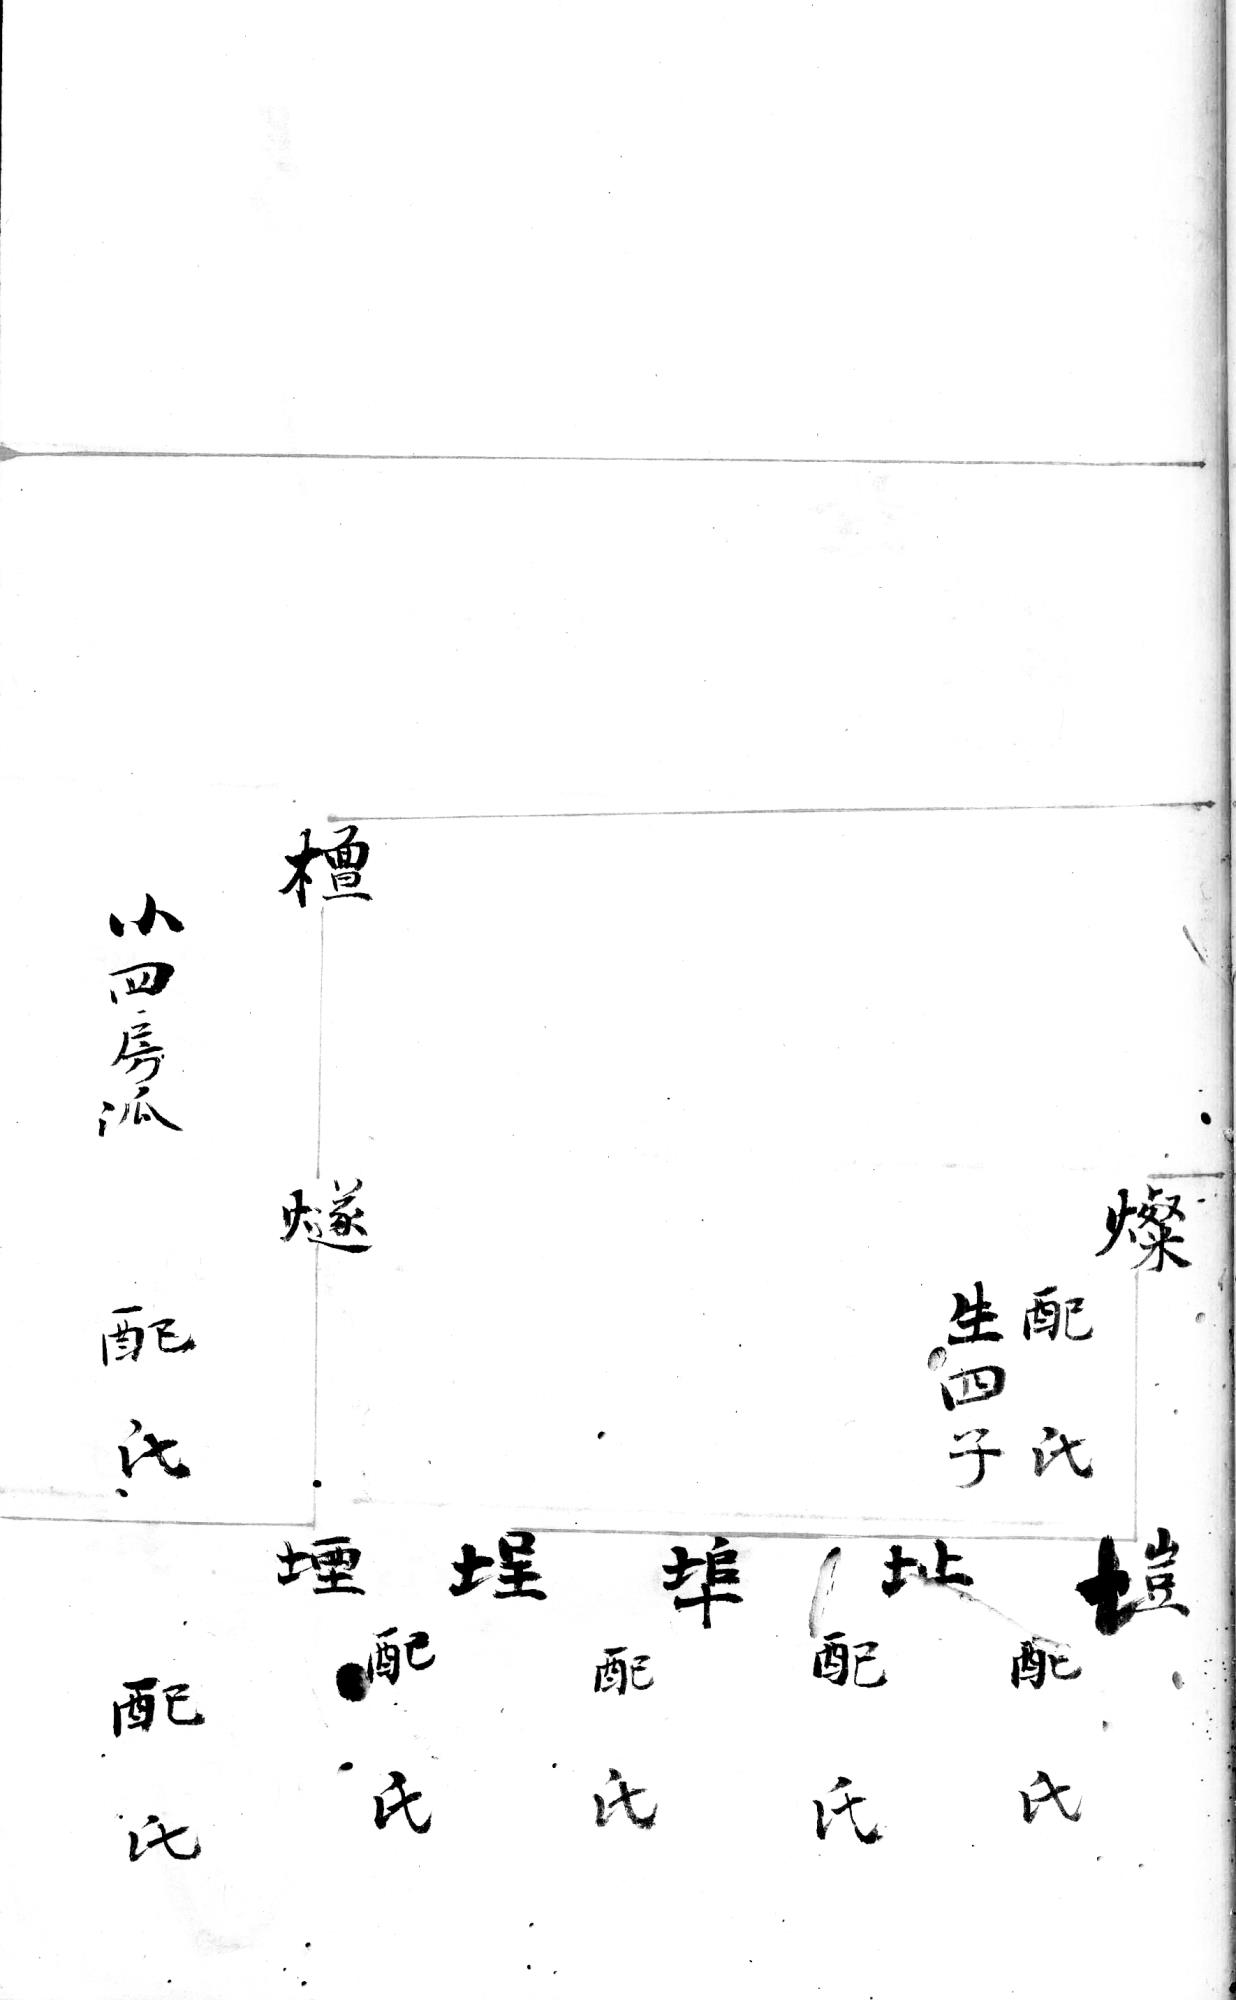 檀
小四房泒
燦
配氏
生四子
燧
配氏
塏
配氏
址
配氏
埠
配氏
埕
配氏
堙
配氏